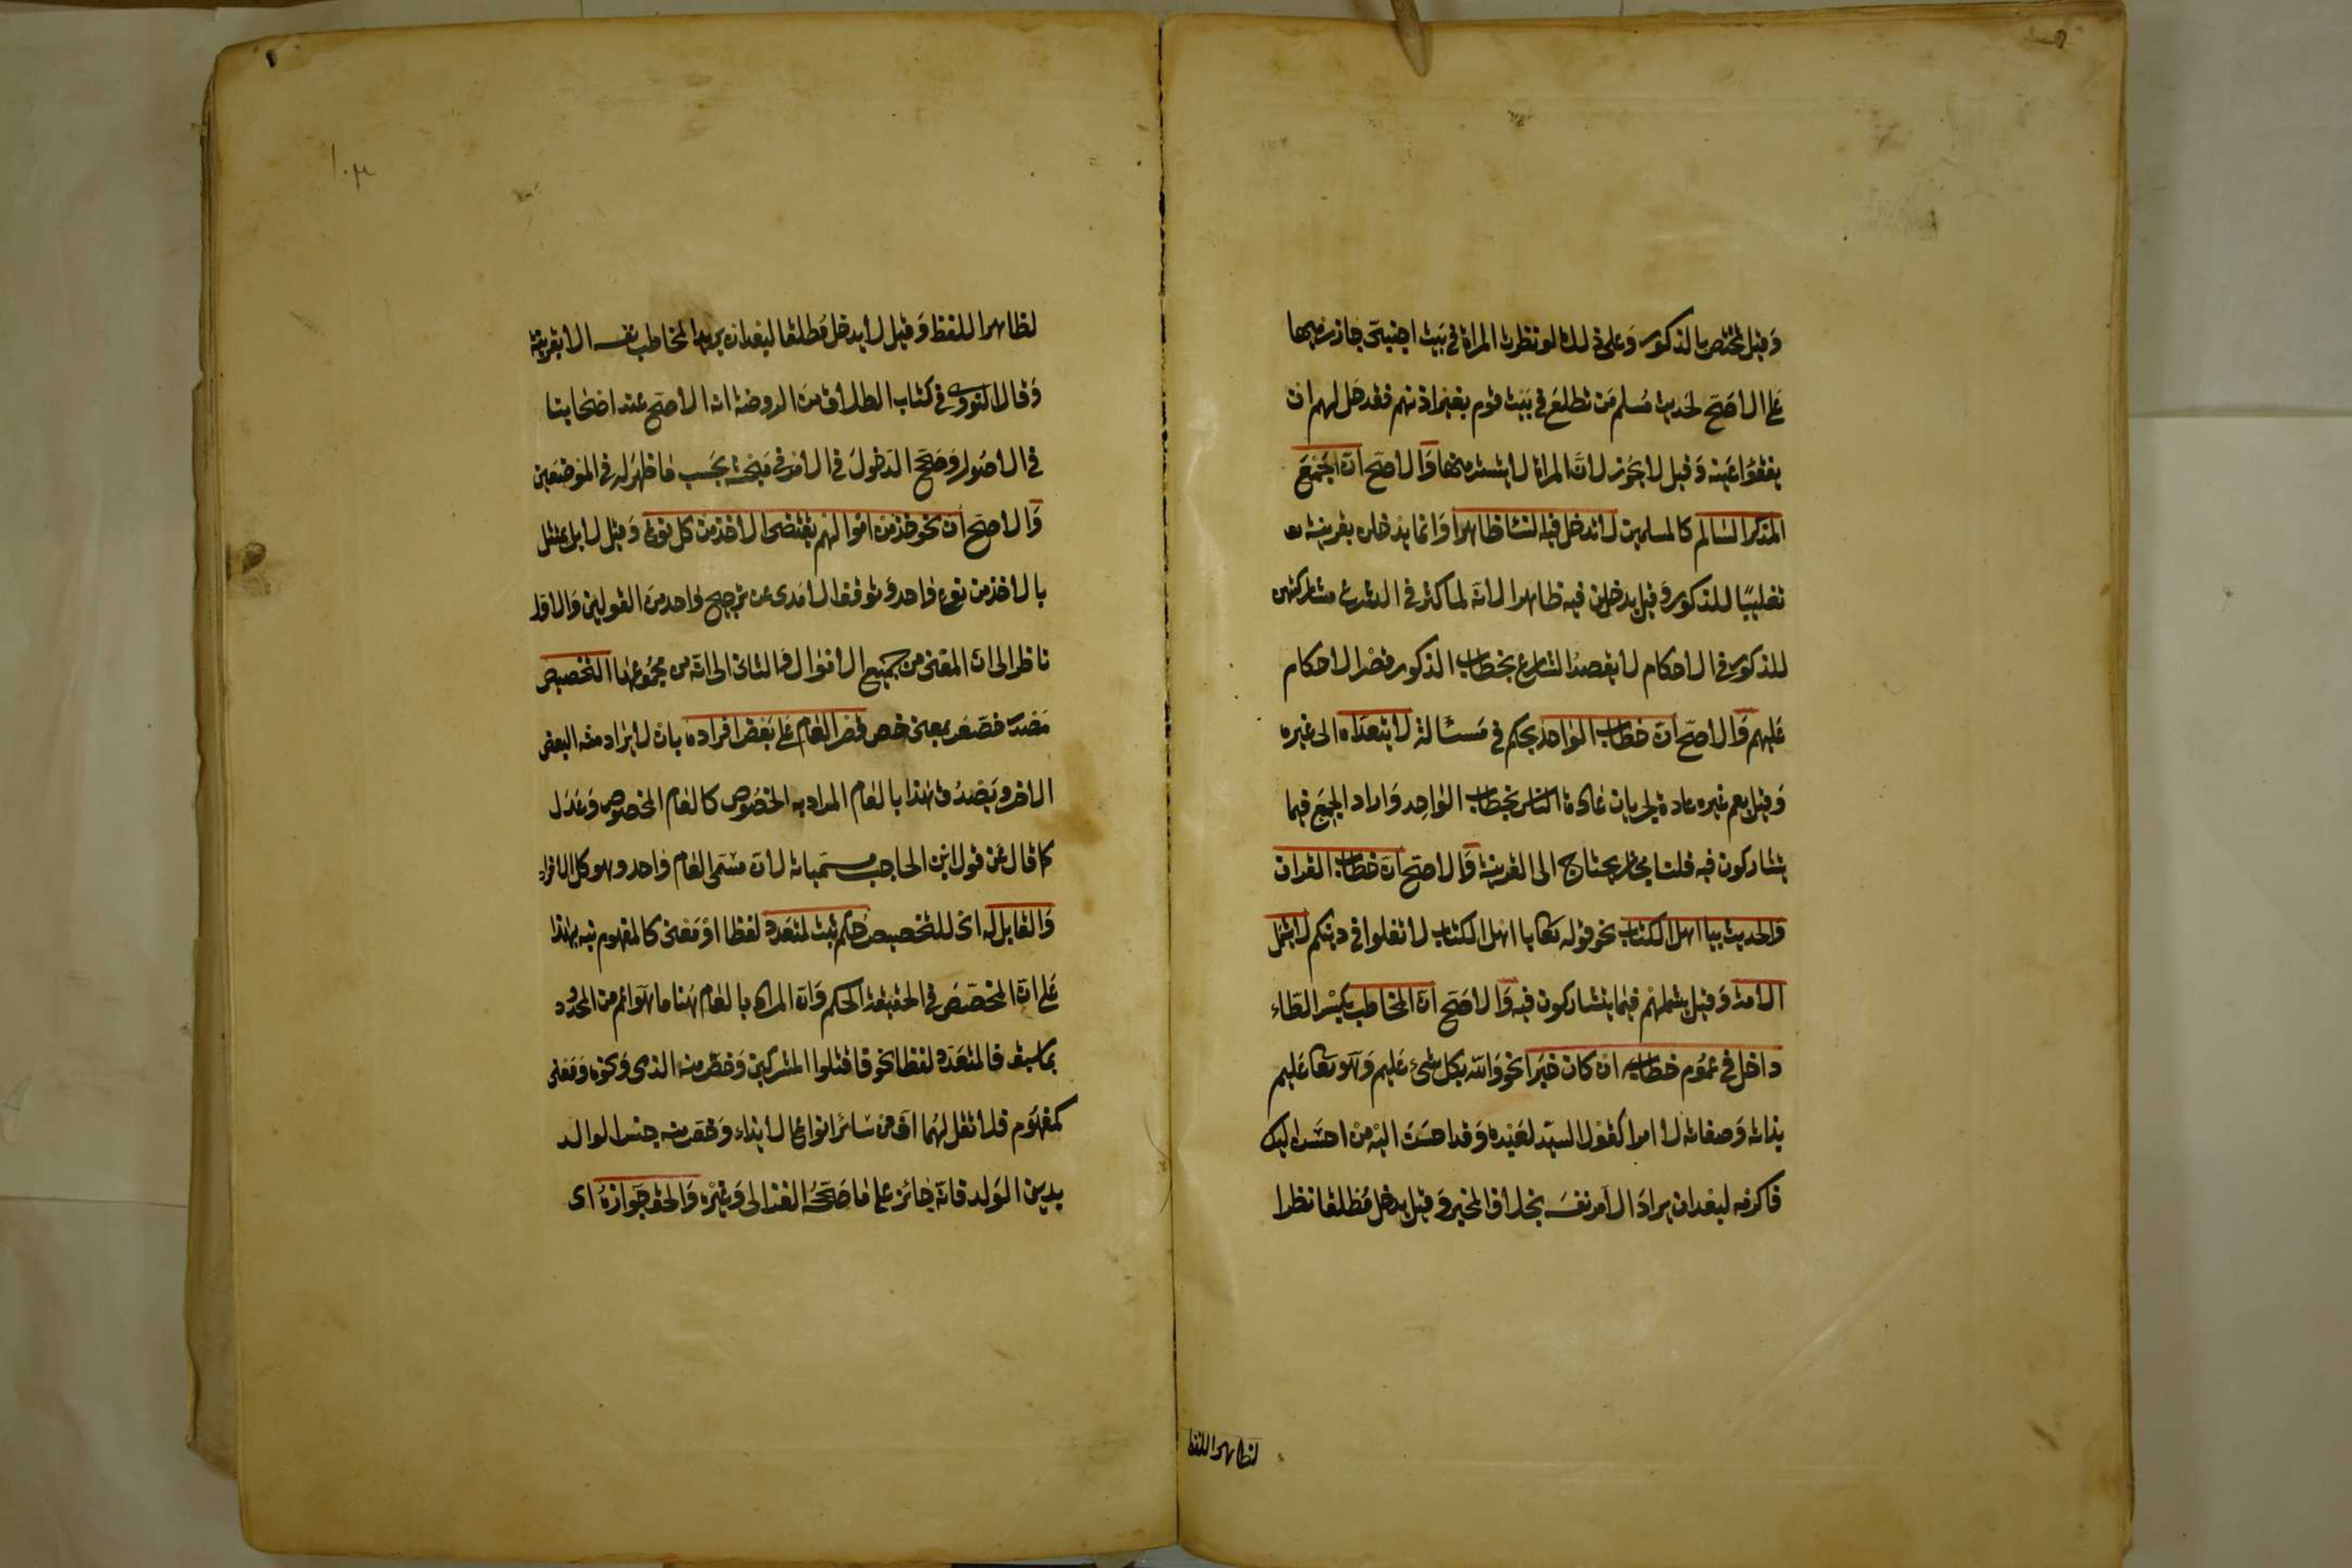 وقيل تختص بالذكور وعلى ذلك لو نظرت المراة في بيت اجنبي جاز رميها
على الاصح لحديث مسلم من تطلع في بيت قوم بغير اذنهم فقد حل لهم ان
يفقؤا عينه وقيل لا يجوز لان المراة لا يستتر منها والاصح ان الجمع
المذكر السالم كالمسلمين لا تدخل فيه النسا ظاهرا وانما يدخلن بقرينة
تغليبًا للذكور وقيل يدخلن فيه ظاهرا لانه لما كثر في الشرع مشاركتهن
للذكور في الاحكام لا يقصد الشارع بخطاب الذكور قصر الاحكام
عليهم والاصح ان خطاب الواحد بحكم في مسئالة لا يتعداه الى غيره
وقيل يعم غيره عادة لجريان عادة الناس بخطاب الواحد وارادة الجمع فيما
يتشاركون فيه قلنا مجاز يحتاج الى القرينة والاصح ان خطاب القران
والحديث بيا اهل الكتاب نحو قوله تعا يا اهل الكتاب لا تغلوا في دينكم لا يشمل
الامة وقيل يشملهم فيما يتشاركون فيه والاصح ان المخاطب بكسر الطاء
داخل في عموم خطابه ان كان خبرا نحو والله بكل شئ عليم وهو تعا عليم
بذاته وصفاته لا امرا كقول السيد لعبده وقد احسن اليه من احسن اليك
فاكرمه لبعد ان يراد الآمر نفسه بخلاف المخبر وقيل يدخل مطلقا نظرا
لظاهر اللفظ
١٠٣
لظاهر اللفظ وقيل لا يدخل مطلقا لبعد ان يريد المخاطب نفسه الا بقرينة
وقال النووي في كتاب الطلاق من الروضة انه الاصح عند اصحابنا
في الاصول وصحح الدخول في الامر في مبحثه بحسب ما ظهر له في الموضعين
والاصح ان نحو خذ من اموالهم يقتضى الاخذ من كل نوع وقيل لا بل يمتثل
بالاخذ من نوع واحد وتوقف الامدى عن ترجيح واحد من القولين والاول
ناظر الى ان المعنى من جميع الانواع والثانى الى انه من مجموعها التخصيص
مصدر خصص بمعنى خص قصر العام على بعض افراده بان لا يراد منه البعض
الاخر ويصدق هذا بالعام المراد به الخصوص كالعام المخصوص وعدل
كما قال عن قول ابن الحاجب مسمياته لان مسمى العام واحد وهو كل الافراد
والقابل له اى للتخصيص حكم ثبت لمتعدد لفظا او معنى كالمفهوم نبه بهذا
على ان المخصص في الحقيقة الحكم وان المراد بالعام هنا ما هو اعم من المحدود
بما سبق فالمتعدد لفظا نحو فاقتلوا المشركين وخص منه الذمى ونحوه ومعنى
كمفهوم فلا تقل لهما اف من سائر انواع الايذاء وخص منه حبس الوالد
بدين الولد فانه جائز على ما صححه الغزالى وغيره والحق جوازه اى